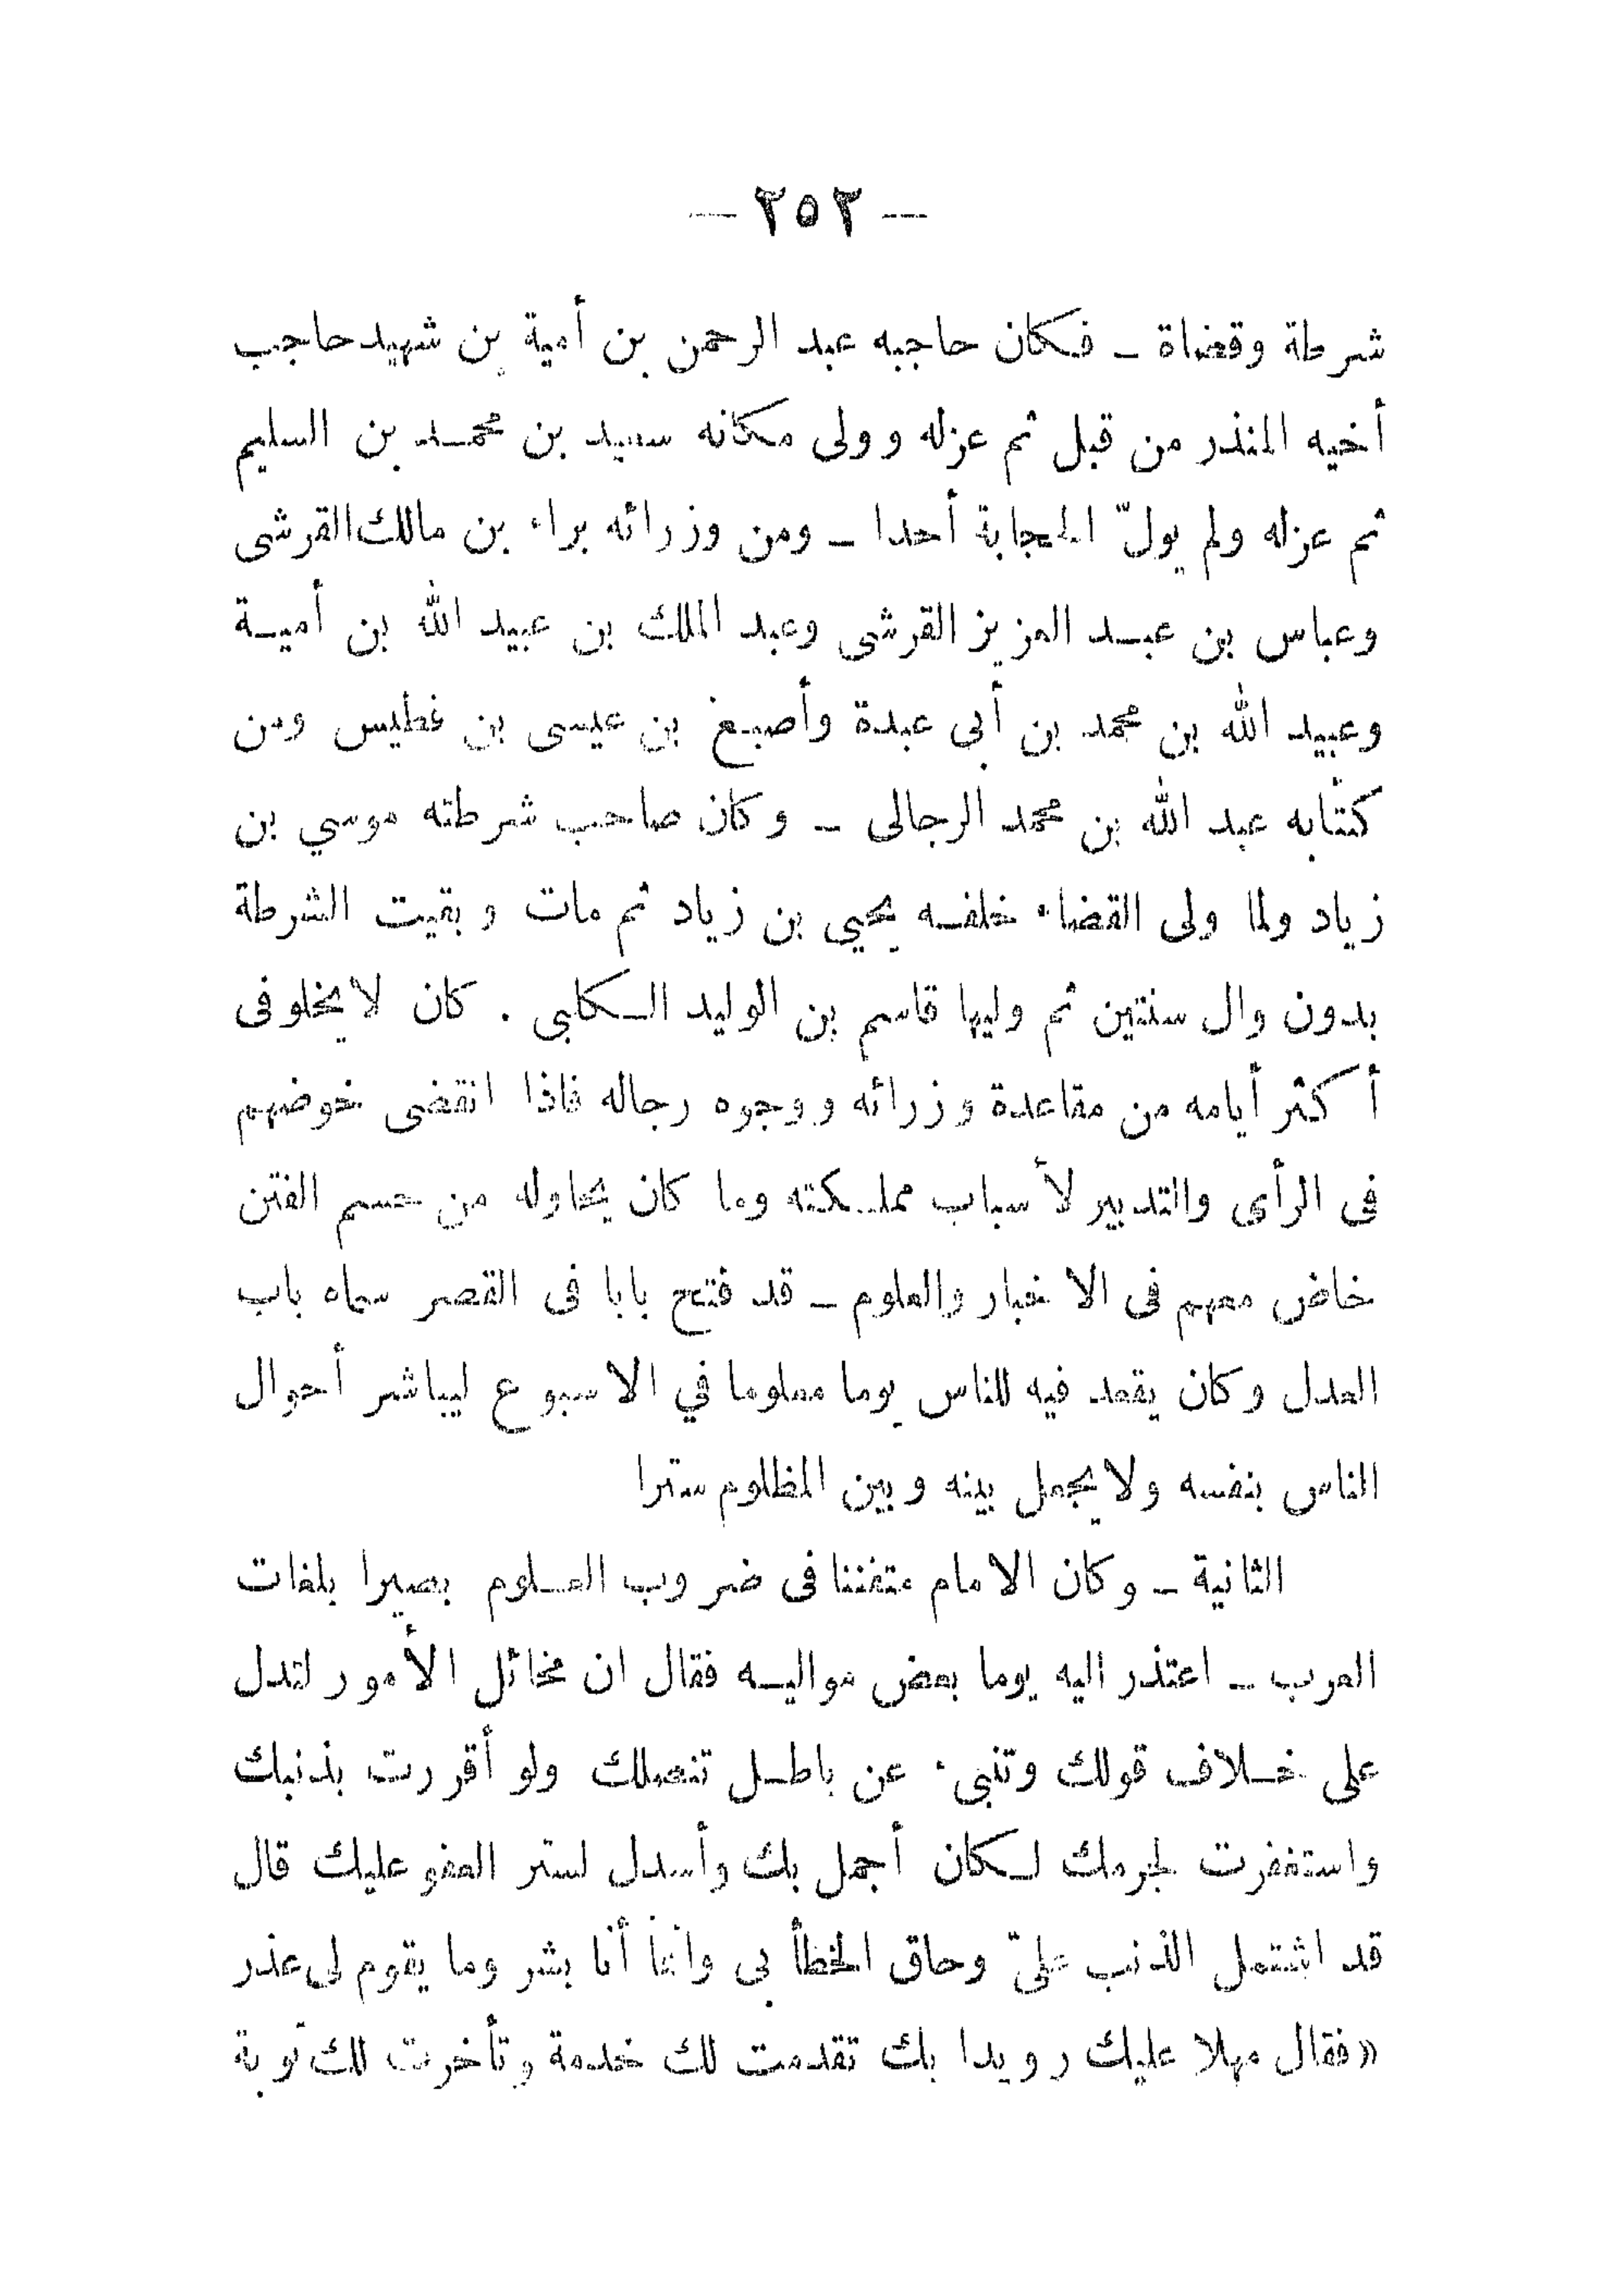 — ٢٥٢ —
شرطة وقضاة ـ فكان حاجبه عبد الرحمن بن أمية بن شهيد حاجب
أخيه المنذر من قبل ثم عزله وولى مكانه سعيد بن محمد بن السليم
ثم عزله ولم يولّ الحجابة أحدا ـ ومن وزرائه براء بن مالك القرشى
وعباس بن عبد العزيز القرشى وعبد الملك بن عبيد الله بن أمية
وعبيد الله بن محمد بن أبى عبدة وأصبغ بن عيسى بن فطيس ومن
كتّابه عبد الله بن محمد الزجالى ـ وكان صاحب شرطته موسي بن
زياد ولما ولى القضاء خلفه يحيي بن زياد ثم مات وبقيت الشرطة
بدون وال سنتين ثم وليها قاسم بن الوليد الكلبى . كان لا يخلو فى
أكثر أيامه من مقاعدة وزرائه ووجوه رجاله فاذا انقضى خوضهم
فى الرأى والتدبير لأسباب مملكته وما كان يحاوله من حسم الفتن
خاض معهم فى الاخبار والعلوم ـ قد فتح بابا فى القصر سماه باب
العدل وكان يقعد فيه للناس يوما معلوما في الاسبوع ليباشر أحوال
الناس بنفسه ولا يجعل بينه وبين المظلوم سترا
الثانية ـ وكان الامام متفننا فى ضروب العلوم بصيرا بلغات
العرب ـ اعتذر اليه يوما بعض مواليه فقال ان مخائل الأمور لتدل
على خلاف قولك وتنبىء عن باطل تنصلك ولو أقررت بذنبك
واستغفرت لجرمك لكان أجمل بك وأسدل لستر العفو عليك قال
قد اشتمل الذنب علىّ وحاق الخطأ بى وانما أنا بشر وما يقوم لى عذر
«فقال مهلا عليك رويدا بك تقدمت لك خدمة وتأخرت لك توبة